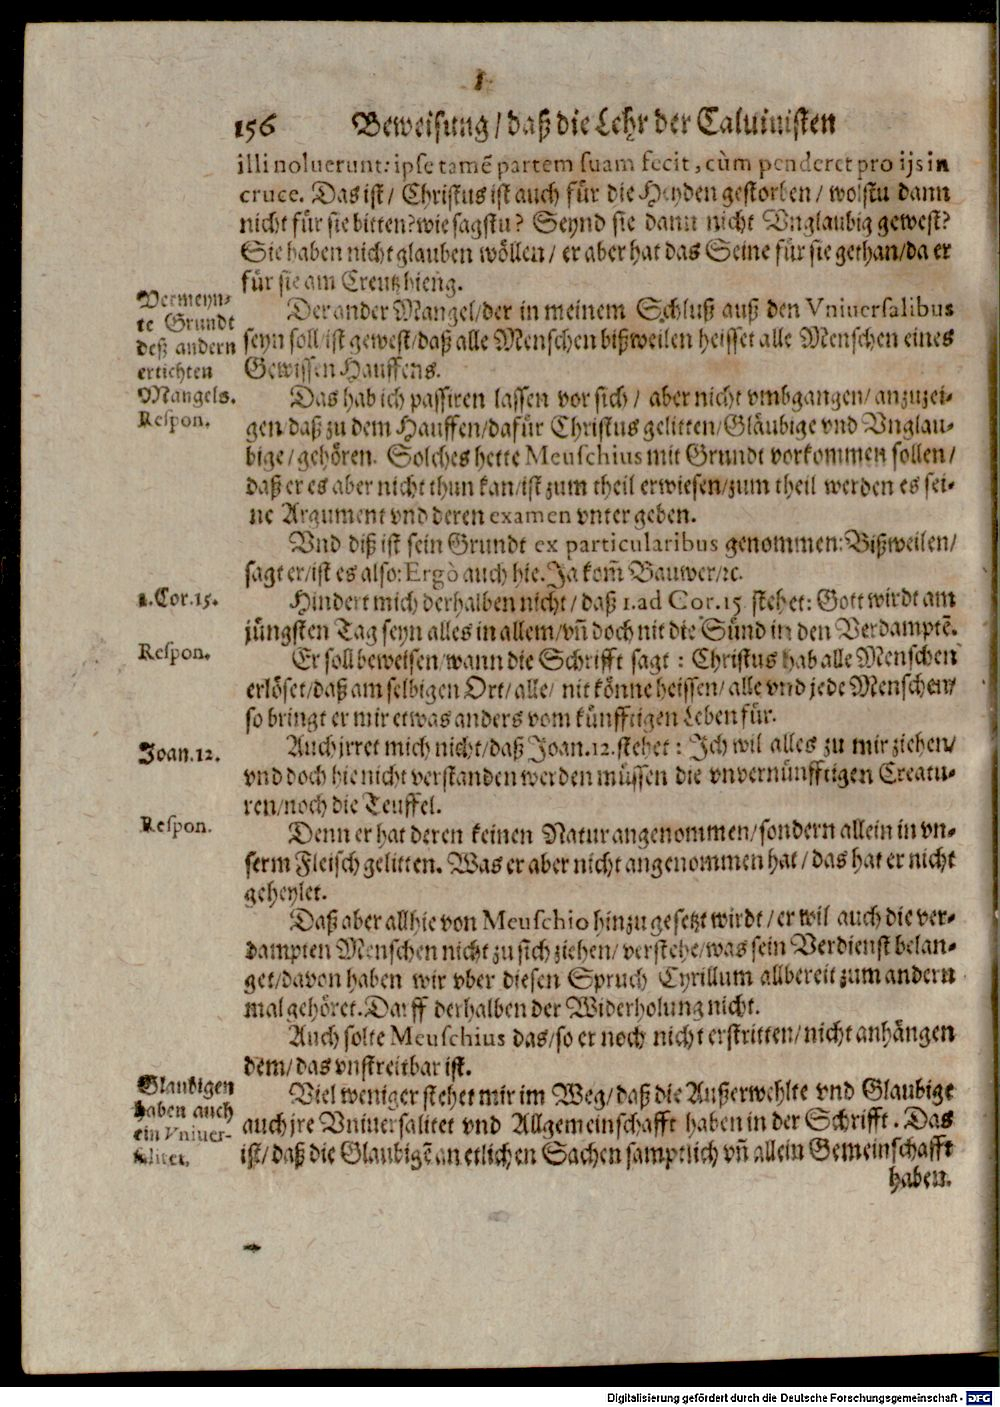 156 Beweisung / daß die Lehr der Caluinisten
illi noluerunt: ipse tamē partem suam fecit, cùm penderet pro ijs in
cruce. Das ist / Christus ist auch für die Heyden gestorben / wolstu dann
nicht für sie bitten? wie sagstu? Seynd sie dann nicht Vnglaubig gewest?
Sie haben nicht glauben wöllen / er aber hat das Seine für sie gethan / da er
für sie am Creutz hieng.
Vermeyn-
te Grundt
deß andern
ertichten
Mangels.
Der ander Mangel / der in meinem Schluß auß den Vniuersalibus
seyn soll / ist gewest / daß alle Menschen bißweilen heisset alle Menschen eines
Gewissen Hauffens.
Respon.
Das hab ich passiren lassen vor sich / aber nicht vmbgangen / anzuzei-
gen daß zu dem Hauffen / dafür Christus gelitten / Gläubige vnd Vnglau-
bige / gehören. Solches hette Meuschius mit Grundt vorkommen sollen /
daß er es aber nicht thun kan / ist zum theil erwiesen / zum theil werden es sei-
ne Argument vnd deren examen vnter geben.
Vnd diß ist sein Grundt ex particularibus genommen: Bißweilen /
sagt er / ist es also: Ergò auch hie. Ja kom̃ Bauwer / ꝛc.
1. Cor. 15.
Hindert mich derhalben nicht / daß 1. ad Cor. 15 stehet: Gott wirdt am
jüngsten Tag seyn alles in allem / vñ doch nit die Sünd in den Verdamptē.
Respon.
Er soll beweisen / wann die Schrifft sagt: Christus hab alle Menschen
erlöset / daß am selbigen Ort / alle / nit könne heissen / alle vnd jede Menschen /
so bringt er mir etwas anders vom künfftigen Leben für.
Joan. 12.
Auch irret mich nicht / daß Joan. 12. stehet: Ich wil alles zu mir ziehen /
vnd doch hie nicht verstanden werden müssen die vnvernünfftigen Creatu-
ren / noch die Teuffel.
Respon.
Denn er hat deren keinen Natur angenommen / sondern allein in vn-
serm Fleisch gelitten. Was er aber nicht angenommen hat / das hat er nicht
geheylet.
Daß aber allhie von Meuschio hinzu gesetzt wirdt / er wil auch die ver-
dampten Menschen nicht zu sich ziehen / verstehe / was sein Verdienst belan-
get / davon haben wir vber diesen Spruch Cyrillum allbereit zum andern
mal gehöret. Darff derhalben der Widerholung nicht.
Auch solte Meuschius das / so er noch nicht erstritten / nicht anhängen
dem / das vnstreitbar ist.
Glaubigen
haben auch
ein Vniuer-
salitet.
Viel weniger stehet mir im Weg / daß die Außerwehlte vnd Glaubige
auch jre Vniuersalitet vnd Allgemeinschafft haben in der Schrifft. Das
ist / daß die Glaubigē an etlichen Sachen samptlich vñ allein Gemeinschafft
haben.
Digitalisierung gefördert durch die Deutsche Forschungsgemeinschaft - DFG